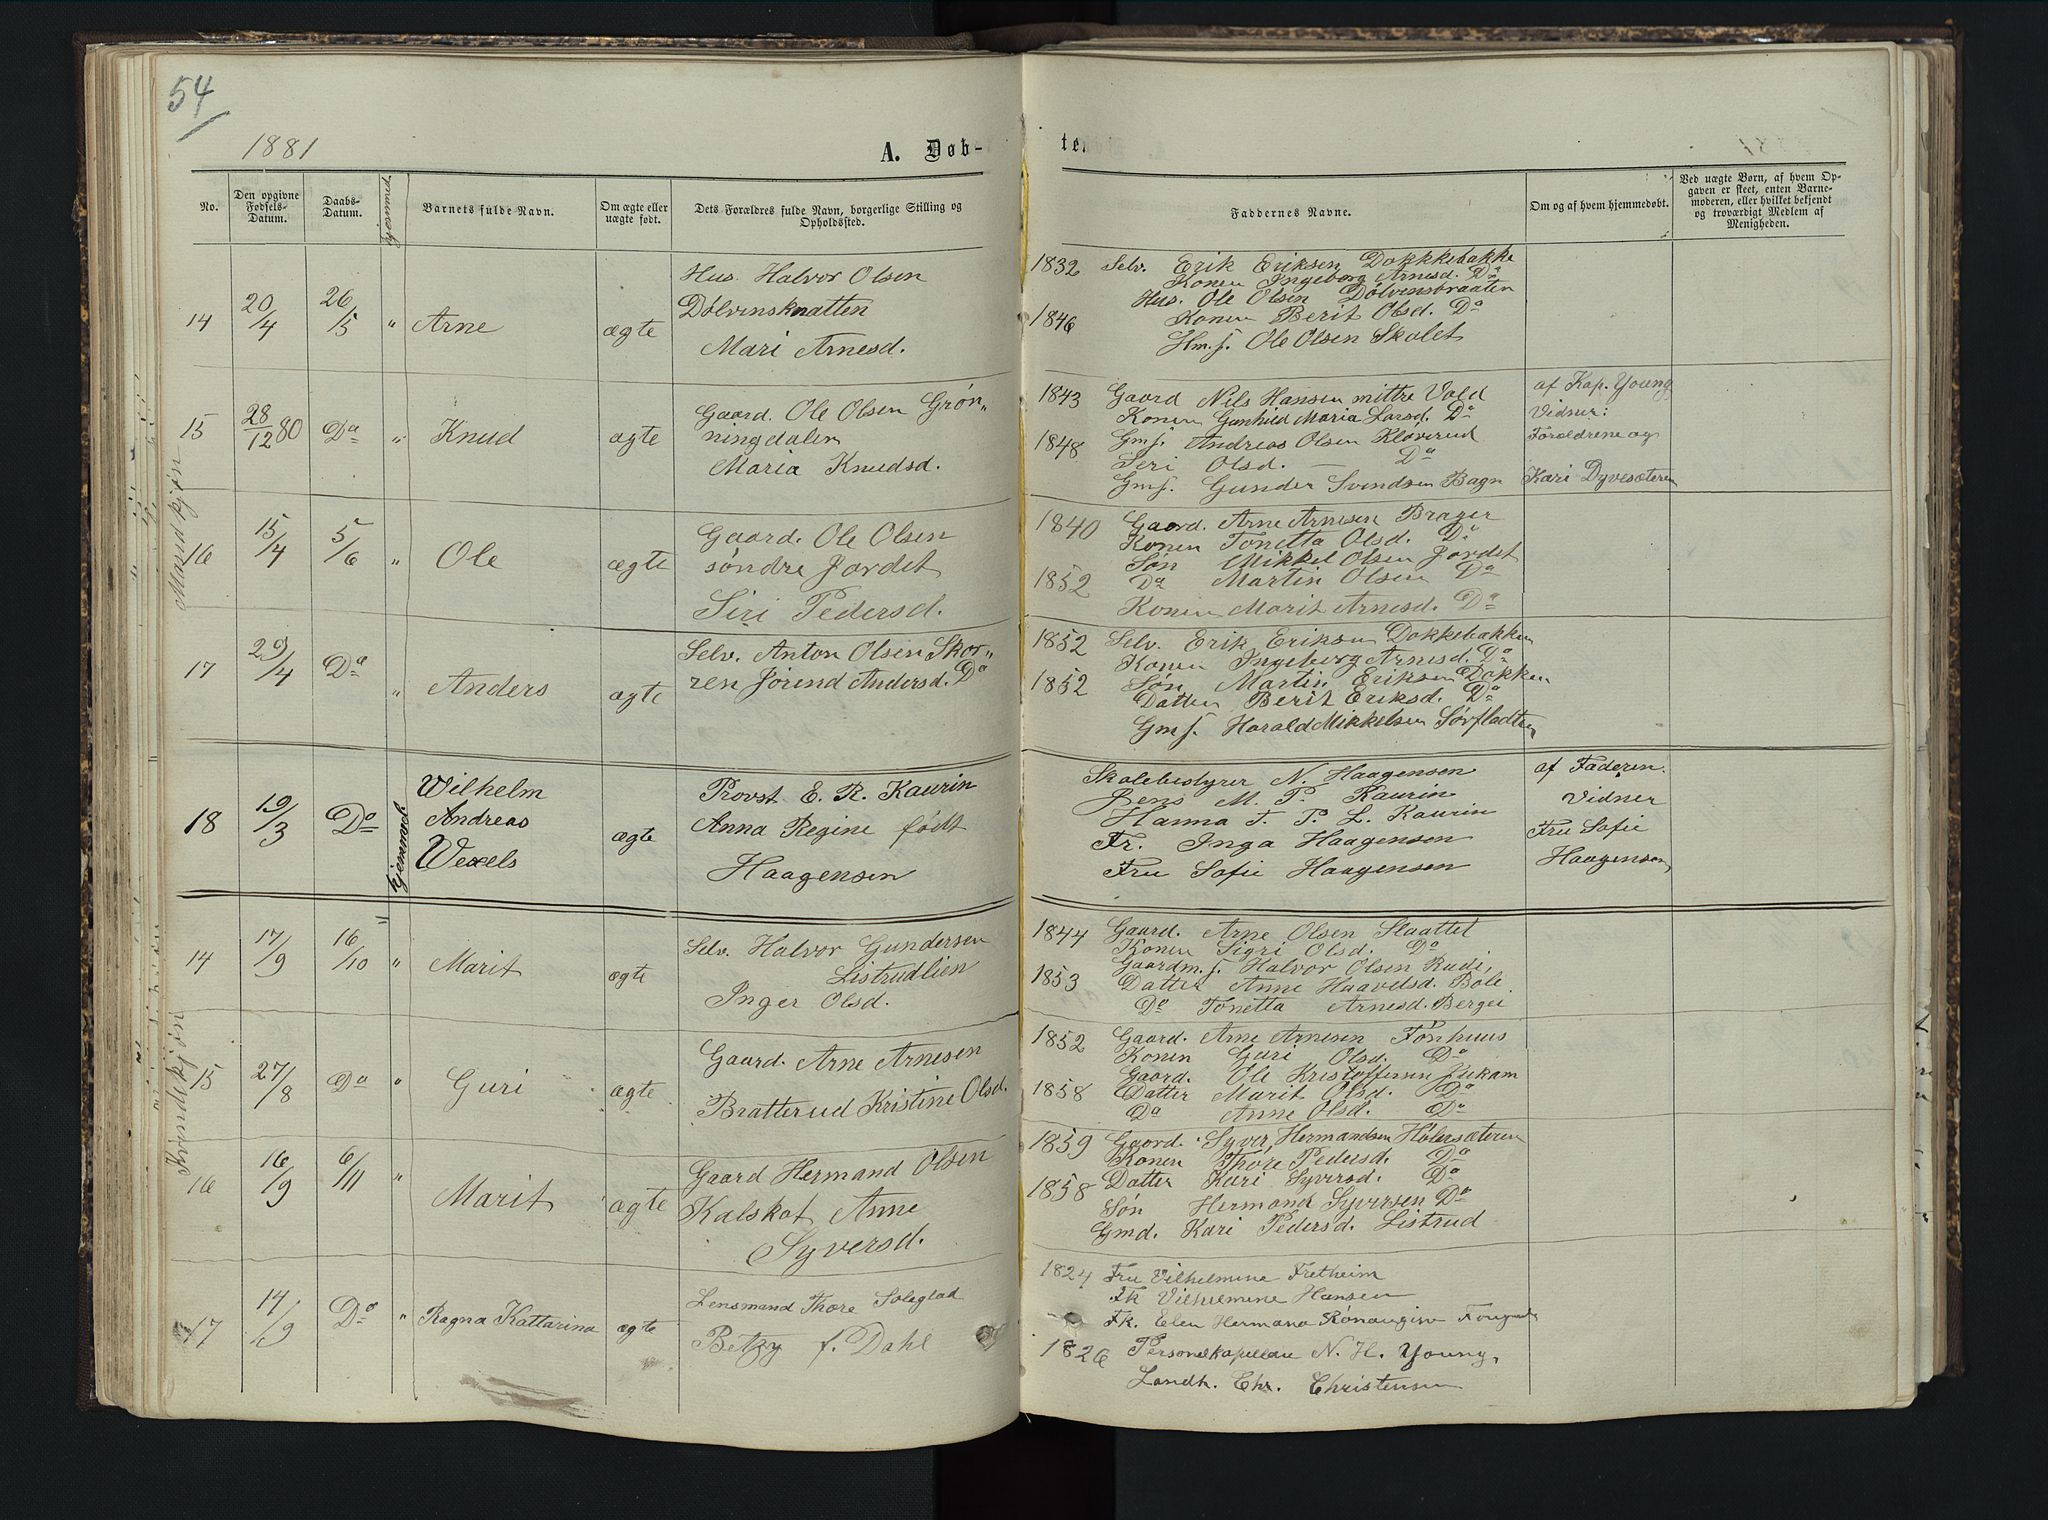 54
1881
A. Døb-
te.
No.
Den opgivne Fødsels-Datum.
Daabs-Datum.
hjemmed.
Barnets fulde Navn.
Om ægte eller uægte født.
Dets Forældres fulde Navn, borgerlige Stilling og Opholdssted.
Faddernes Navne.
Om og af hvem hjemmedøbt.
Ved uægte Børn, af hvem Op-
gaven er skeet, enten Barne-
moderen, eller hvilket bekjendt
og troværdigt Medlem af
Menigheden.
Mandkjøn
14 20/4 26/5 " Arne ægte
Hus. Halvor Olsen
Dølvinsknatten
Mari Arnesd.
1832 Selv. Erik Eriksen Dokkebakke
Konen Ingeborg Arnesd. Do
Hus. Ole Olsen Dølvensbraaten
1846 Konen Berit Olsd. Do
Hm.s. Ole Olsen Skolet
15 28/12 80 Do " Knud ægte
Gaard. Ole Olsen Grøn„
ningdalen
Maria Knudsd.
1843 Gaard Nils Hansen mittre Vold
Konen Gunhild Maria Larsd. Do
1848 Gms. Andreas Olsen Kloverud
Seri Olsd. — Do
Gms. Gunder Svendsen Bagn
af Kap. Young
Vidner:
Foroldrene og
Kari Dyvesæteren
16 15/4 5/6 " Ole ægte
Gaard. Ole Olsen
søndre Jordet
Siri Pedersd.
1840 Gaard. Arne Arnesen Brager
Konen Tonetta Olsd. Do
Søn Mikkel Olsen Jordet
1852 Do Martin Olsen Do
Konen Marit Arnesd. Do
17 29/4 Do " Anders ægte
Selv. Anton Olsen Skor„
ren Jorend Andersd. Do
1852 Selv. Erik Eriksen Dokkebakken
Konen Ingeborg Arnesd. Do
1852 Søn Martin Eriksen Dokken
Datter Berit Eriksd. Do
Gms. Harald Mikkelsen Sørfladten
18 19/3 Do hjemmed. Wilhelm
Andreas
Wexels
ægte
Provst E. R. Kaurin
Anna Regine født
Haagensen
Skolebestyrer N. Haagensen
Jens M. P. Kaurin
Hanna T. P. L. Kaurin
Fr. Inga Haagensen
Fru Sofie Haagensen
af Faderen.
Vidner
Fru Sofie
Haagensen
Kvindekjøn
14 17/9 16/10 " Marit ægte
Selv. Halvor Gundersen
Listrudlien
Inger Olsd.
1844 Gaard. Arne Olsen Slaattet
Konen Sigri Olsd. Do
Gaardm.s. Halvor Olsen Rudi,
1853 Datter Anne Haavelsd. Bøle
Do Tonetta Arnesd. Berge
15 27/8 Do " Guri ægte
Gaard. Arne Arnesen
Bratterud Kristine Olsd.
1852 Gaard. Arne Arnesen Fønhuus
Konen Guri Olsd. Do
Gaard. Ole Kristoffersen Jukam
1858 Datter Marit Olsd. Do
Do Anne Olsd. Do
16 16/9 6/11 " Marit ægte
Gaard Hermand Olsen
Kalskot Anne
Syversd.
1859 Gaard. Syver Hermandsen Hølersæteren
Konen Thore Pedersd. Do
1858 Datter Kari Syversd. Do
Søn Hermand Syversen Do
Gmd. Kari Pedersd. Listrud
17 14/9 Do " Ragna Kattarina ægte
Lensmand Thore Soleglad
Betzy f. Dahl
1824 Fru Vilhelmine Fretheim
Fk Vilhelmine Hansen
Fk. Elen Hermana Rønaugine
1826 Personelkapellan N. H. Young,
Landh. Chr. Christensen